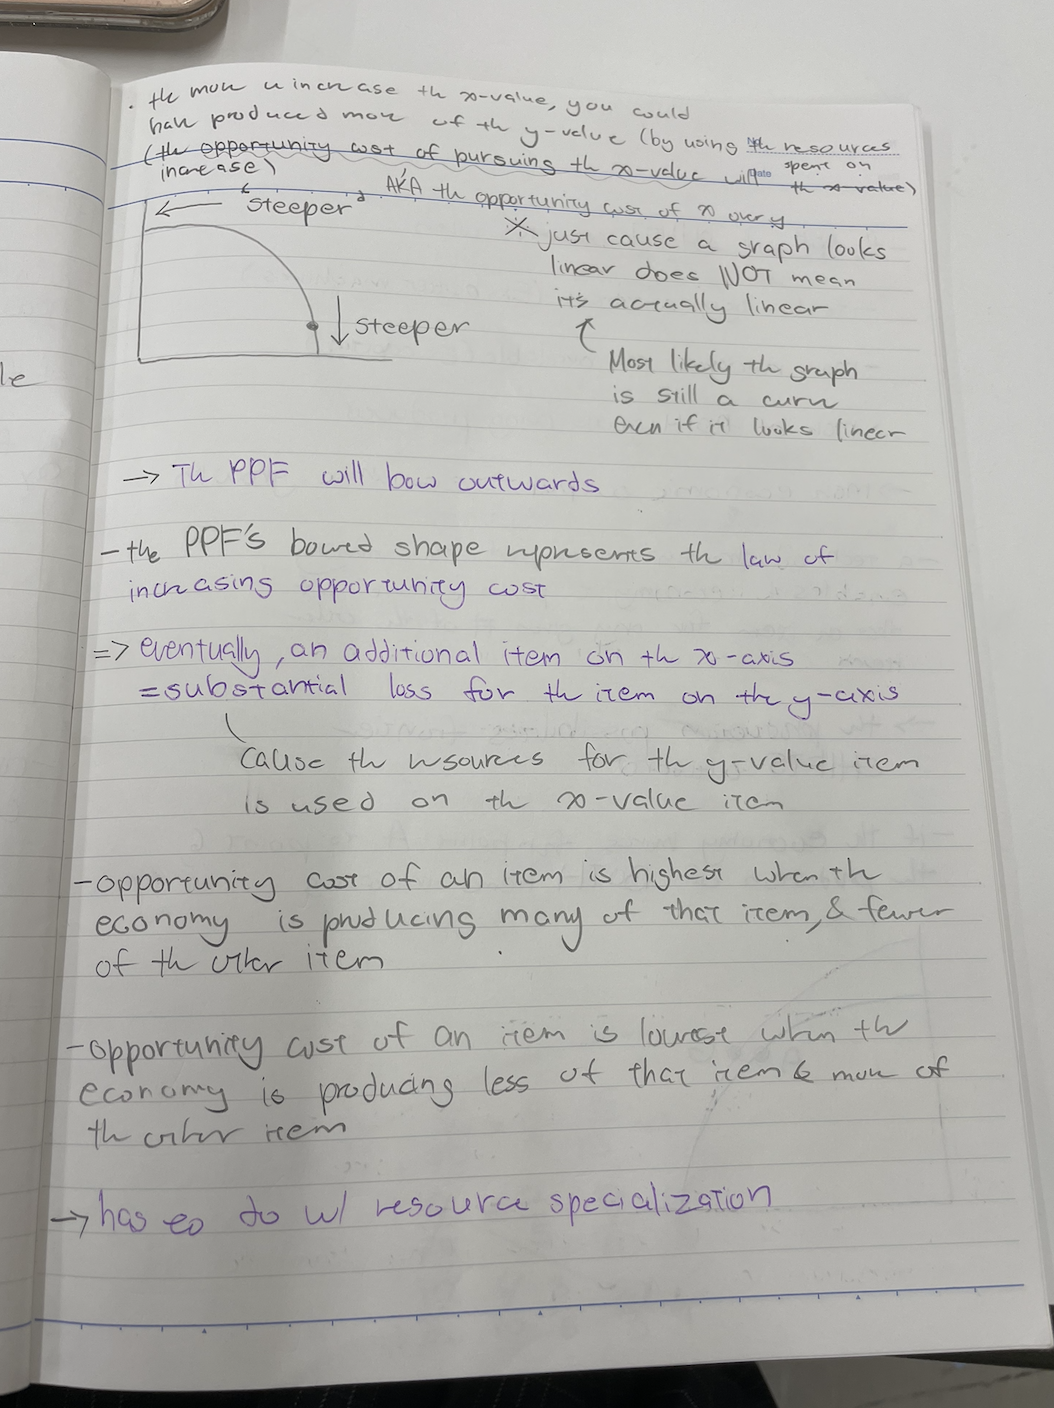 · the more u increase the x-value, you could
have produced more of the y-value (by using the resources
spent on
the x-value)
(the opportunity cost of pursuing the x-value will
increase)
AKA the opportunity cost of x over y
steeper
※ just cause a graph looks
linear does NOT mean
it's actually linear
steeper
Most likely the graph
is still a curve
even if it looks linear
→ The PPF will bow outwards
- the PPF's bowed shape represents the law of
increasing opportunity cost
=> eventually, an additional item on the x-axis
= substantial loss for the item on the y-axis
cause the resources for the y-value item
is used on the x-value item
- opportunity cost of an item is highest when the
economy is producing many of that item, & fewer
of the other item
- opportunity cost of an item is lowest when the
economy is producing less of that item & more of
the other item
→ has to do w/ resource specialization